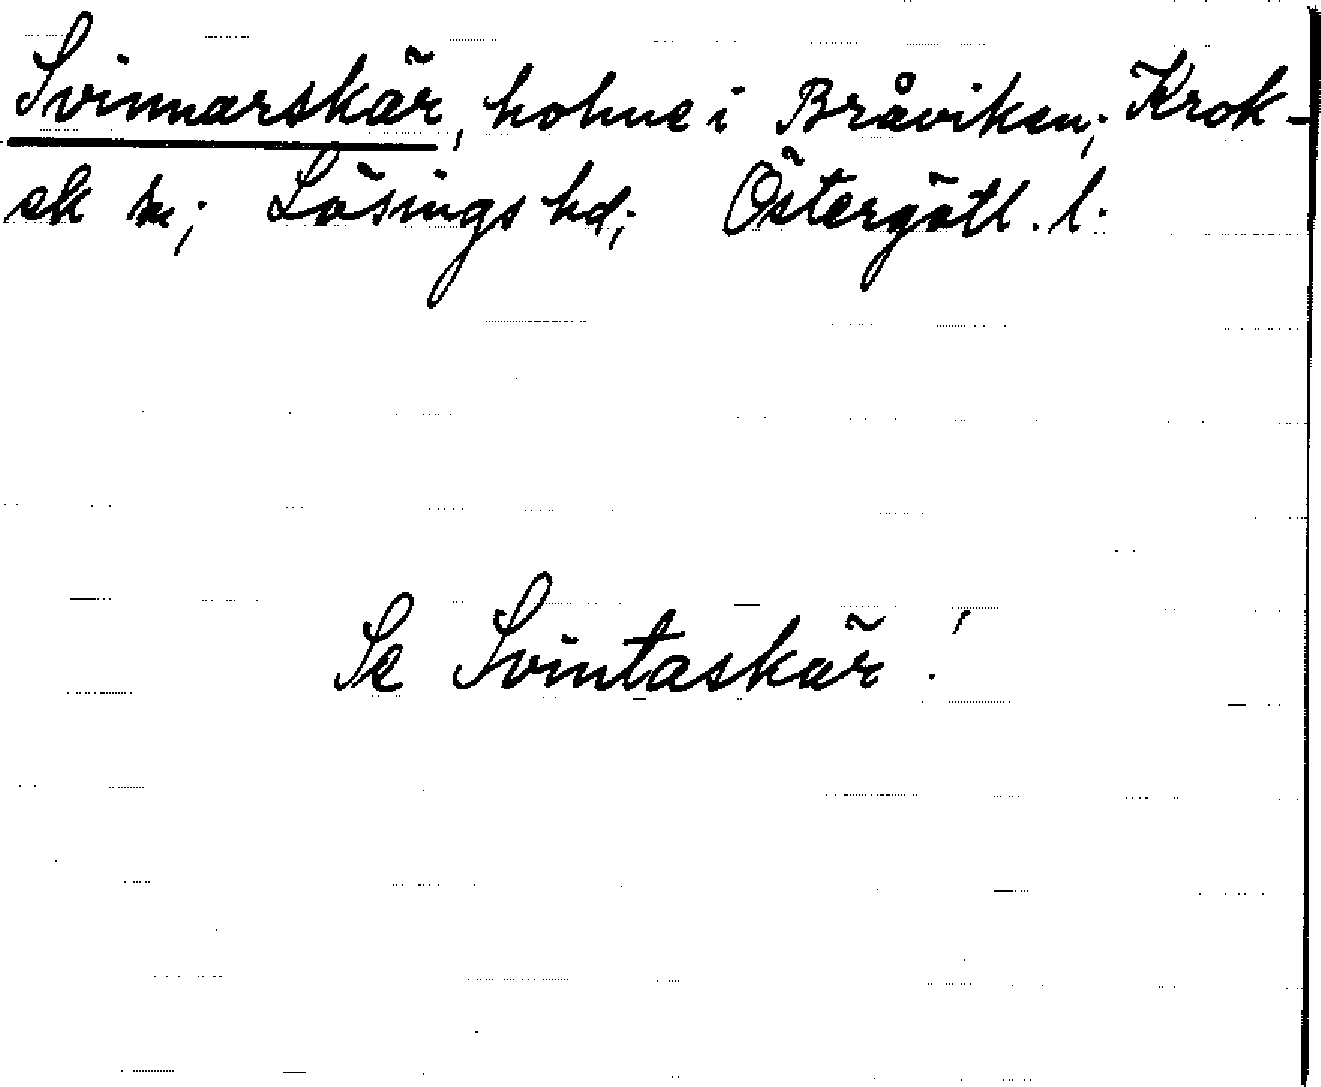 Svinnarskär, holme i Bråviken; Krok-
ek sn; Lösings hd; Östergötl. l.
Se Svintaskär!